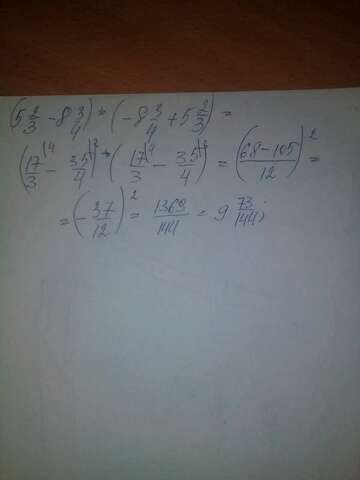 (5 2/3 - 8 3/4) * (-8 3/4 + 5 2/3) =
(17/3 |4 - 35/4 |3) * (17/3 |4 - 35/4 |3) = ((68-105)/12)^2 =
= (-37/12)^2 = 1369/144 = 9 73/144;